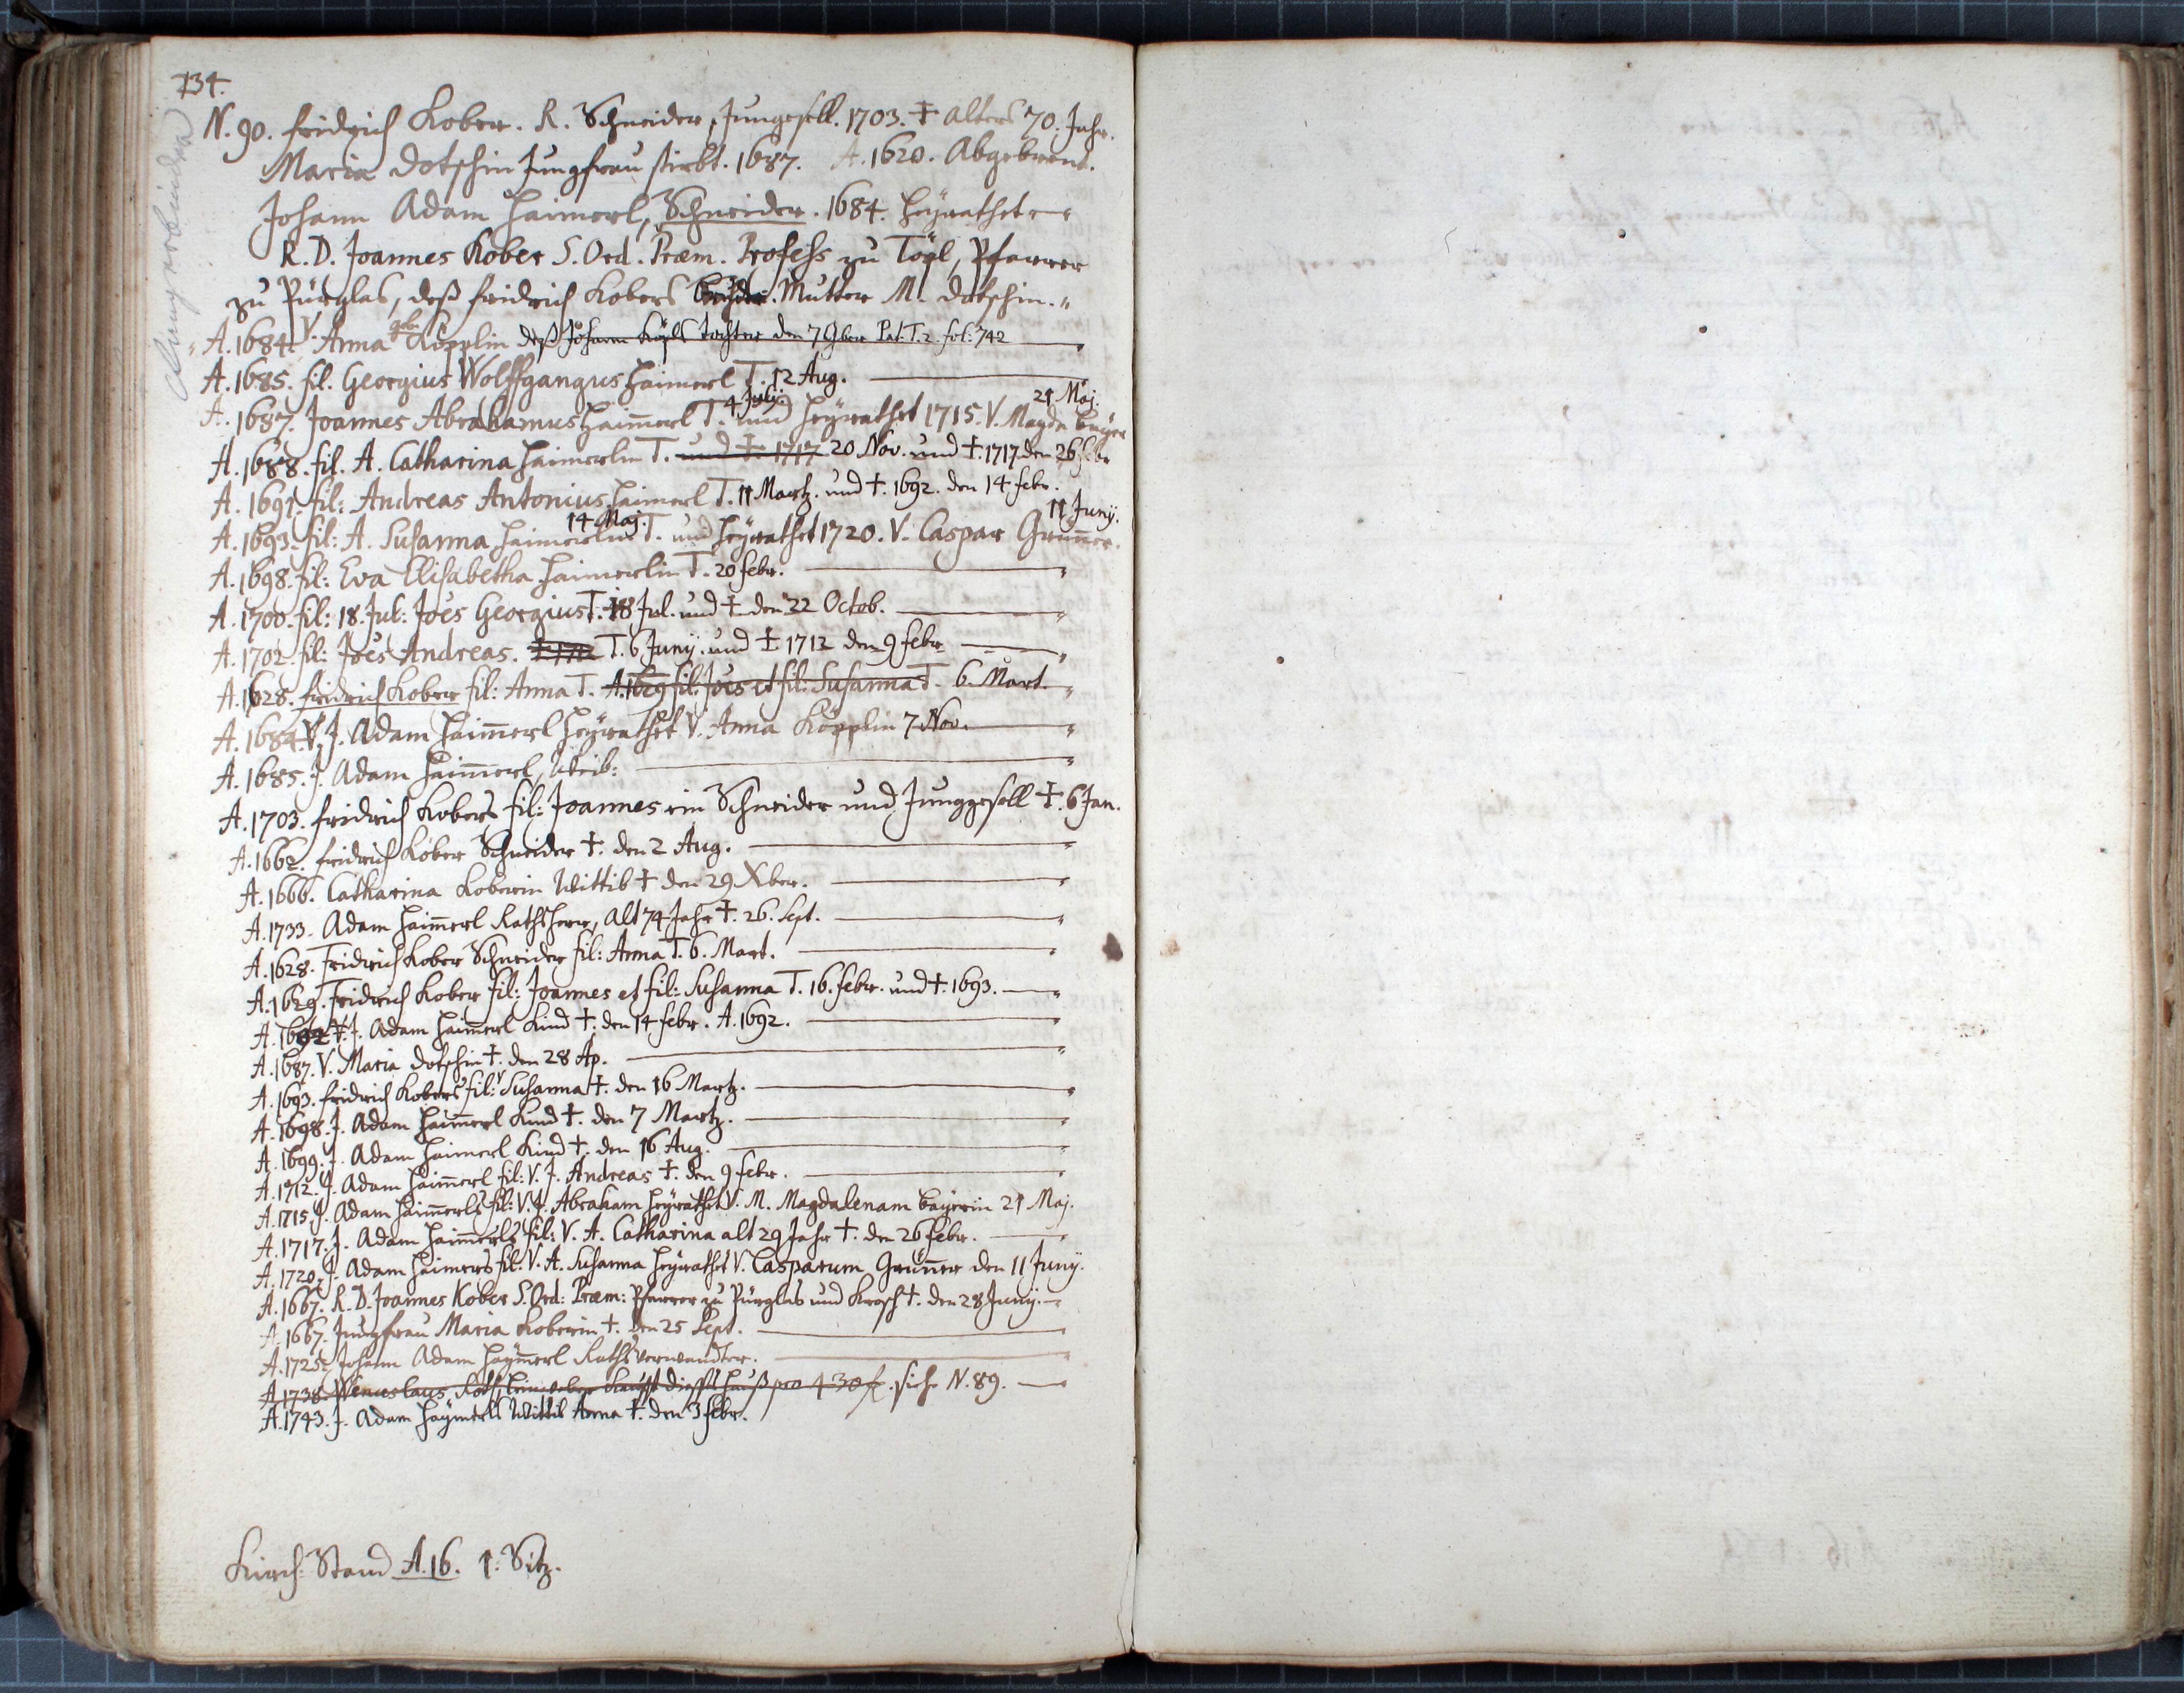 134.
N. 90. Fridrich Kober. R. Schneider, Junggesell. 1703. † Alters 70. Jahr.
Maria Dotschin Jungfrau stirbt. 1687. A. 1620. Abgebrent.
Johann Adam Haimerl, Schneider. 1684. Heÿrathet
R. D. Joannes Kober S. Ord. Præm. Profess zu Töpl, Pfarrer
zu Pürglas, deß Fridrich Kobers Mutter M. Dotschin.
A. 1684. V. Anna Köpplin deß Johann Köpls tochter den 7 9ber Pat. T. 2. fol: 742
A. 1685. fil. Georgius Wolffgangus Haimerl T. 12 Aug.
4 Julÿ. 21 Maj.
A. 1687. Joannes Abrahamus Haim̄erl T. und Heÿrathet 1715. V. Magda Baÿer
A. 1688. fil. A. Catharina Haimerlin T. und †. 1717 20 Nov. und †. 1717 den 26 febr
A. 1691. fil: Andreas Antonius Haimerl T. 11 Martz. und †. 1692. den 14 febr.
14 Maj. 11 Junÿ.
A. 1693. fil: A. Susanna Haimerlin T. und Heÿrathet 1720. V. Caspar Grün̄er.
A. 1698. fil: Eva Elisabetha Haimerlin T. 20 febr.
A. 1700. fil: 18. Jul: Joes Georgius T. 18 Jul. und † den 22 Octob.
A. 1702. fil: Joes Andreas. † 1712 T. 6 Junÿ. und † 1712 den 9 febr
A. 1628. fridrich Kober fil: Anna T. A. 1629 fil: Joes et fil: Susanna T. 6. Mart.
A. 1684. V. J. Adam Haim̄erl Heÿrathet V. Anna Köpplin 7 Nov.
A. 1685. J. Adam Haim̄erl, Weib:
A. 1703. fridrich Kobers fil: Joannes ein Schneider und Junggesell †. 6 Jan.
A. 1662. fridrich Kober Schneider †. den 2 Aug.
A. 1666. Catharina Koberin Wittib † den 29 Xber.
A. 1733. Adam Haim̄erl Rathsherr, alt 74 Jahr †. 26. Sept.
A. 1628. Fridrich Kober Schneider fil: Anna T. 6. Mart.
A. 1629. Fridrich Kober fil: Joannes et fil: Susanna T. 16. febr. und †. 1693.
A. 1692 J. Adam Haimerl Kind †. den 14 febr. A. 1692.
A. 1687. V. Maria Dotschin †. den 28 Ap.
A. 1693. fridrich Kobers fil: V Susanna †. den 16 Martz.
A. 1698. J. Adam Haim̄erl Kind †. den 7 Martz.
A. 1699. J. Adam Haimerl Kind †. den 16 Aug.
A. 1712. J. Adam Haim̄erl fil: V. J. Andreas †. den 9 febr.
A. 1715. J. Adam Haim̄erls fil: V. J. Abraham Heÿrathet V. M. Magdalenam Baÿerin 21 Maj.
A. 1717. J. Adam Haim̄erls fil: V. A. Catharina alt 29 Jahr †. den 26 febr.
A. 1720. J. Adam Haimers fil. V. A. Susanna Heÿrathet V. Casparum Grün̄er den 11 Junÿ.
A. 1667. R. D. Joannes Kober S. Ord: Præm: Pfarrer zu Pürglas und Krosch †. den 28 Junÿ.
A. 1667. Jungfrau Maria Koberin †. den 25 Sept.
A. 1725. Johann Adam Haÿmerl Rathsverwandter.
A. 1738. Wenceslaus Roth, Leinweber Kaufft dieses Hauß pro 430 f. sieh N. 89.
A. 1743. J. Adam Haÿmerls Wittib Anna †. den 3 febr.
Kirch: Stand A. 16. 1. Sitz.